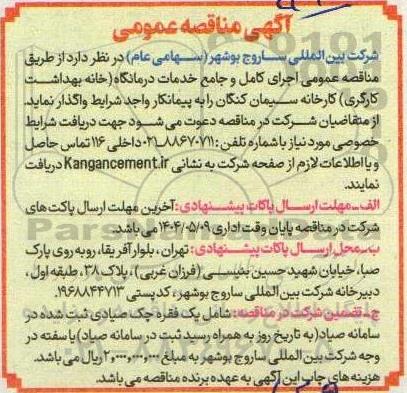 آگهی مناقصه عمومی
شرکت بین المللی ساروج بوشهر (سهامی عام) در نظر دارد از طریق
مناقصه عمومی اجرای کامل و جامع خدمات درمانگاه (خانه بهداشت
کارگری) کارخانه سیمان کنگان را به پیمانکار واجد شرایط واگذار نماید.
از متقاضیان شرکت در مناقصه دعوت می شود جهت دریافت شرایط
خصوصی مورد نیاز با شماره تلفن: ۸۸۶۷۰۷۱۱-۰۲۱ داخلی ۱۱۶ تماس حاصل
و یا اطلاعات لازم از صفحه شرکت به نشانی Kangancement.ir دریافت
نمایند.
الف-مهلت ارسال پاکات پیشنهادی: آخرین مهلت ارسال پاکت های
شرکت در مناقصه پایان وقت اداری ۱۴۰۴/۰۵/۰۹ می باشد.
ب-محل ارسال پاکات پیشنهادی: تهران، بلوار آفریقا، روبه روی پارک
صبا، خیابان شهید حسین بنیسی (فرزان غربی)، پلاک ۳۸، طبقه اول،
دبیرخانه شرکت بین المللی ساروج بوشهر، کدپستی ۱۹۶۸۸۴۴۷۱۳.
ج-تضمین شرکت در مناقصه: شامل یک فقره چک صیادی ثبت شده در
سامانه صیاد (به تاریخ روز به همراه رسید ثبت در سامانه صیاد) یا سفته در
وجه شرکت بین المللی ساروج بوشهر به مبلغ ۲,۰۰۰,۰۰۰,۰۰۰ ریال می باشد.
هزینه های چاپ این آگهی به عهده برنده مناقصه می باشد.